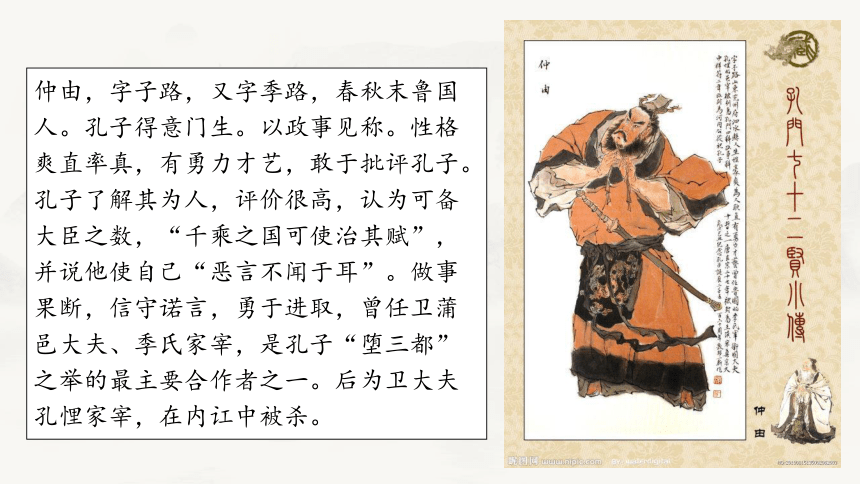 仲由，字子路，又字季路，春秋末鲁国
人。孔子得意门生。以政事见称。性格
爽直率真，有勇力才艺，敢于批评孔子。
孔子了解其为人，评价很高，认为可备
大臣之数，“千乘之国可使治其赋”，
并说他使自己“恶言不闻于耳”。做事
果断，信守诺言，勇于进取，曾任卫蒲
邑大夫、季氏家宰，是孔子“堕三都”
之举的最主要合作者之一。后为卫大夫
孔悝家宰，在内讧中被杀。
仲由
孔門七十二賢小傳
仲由
昵图网 www.nipic.com